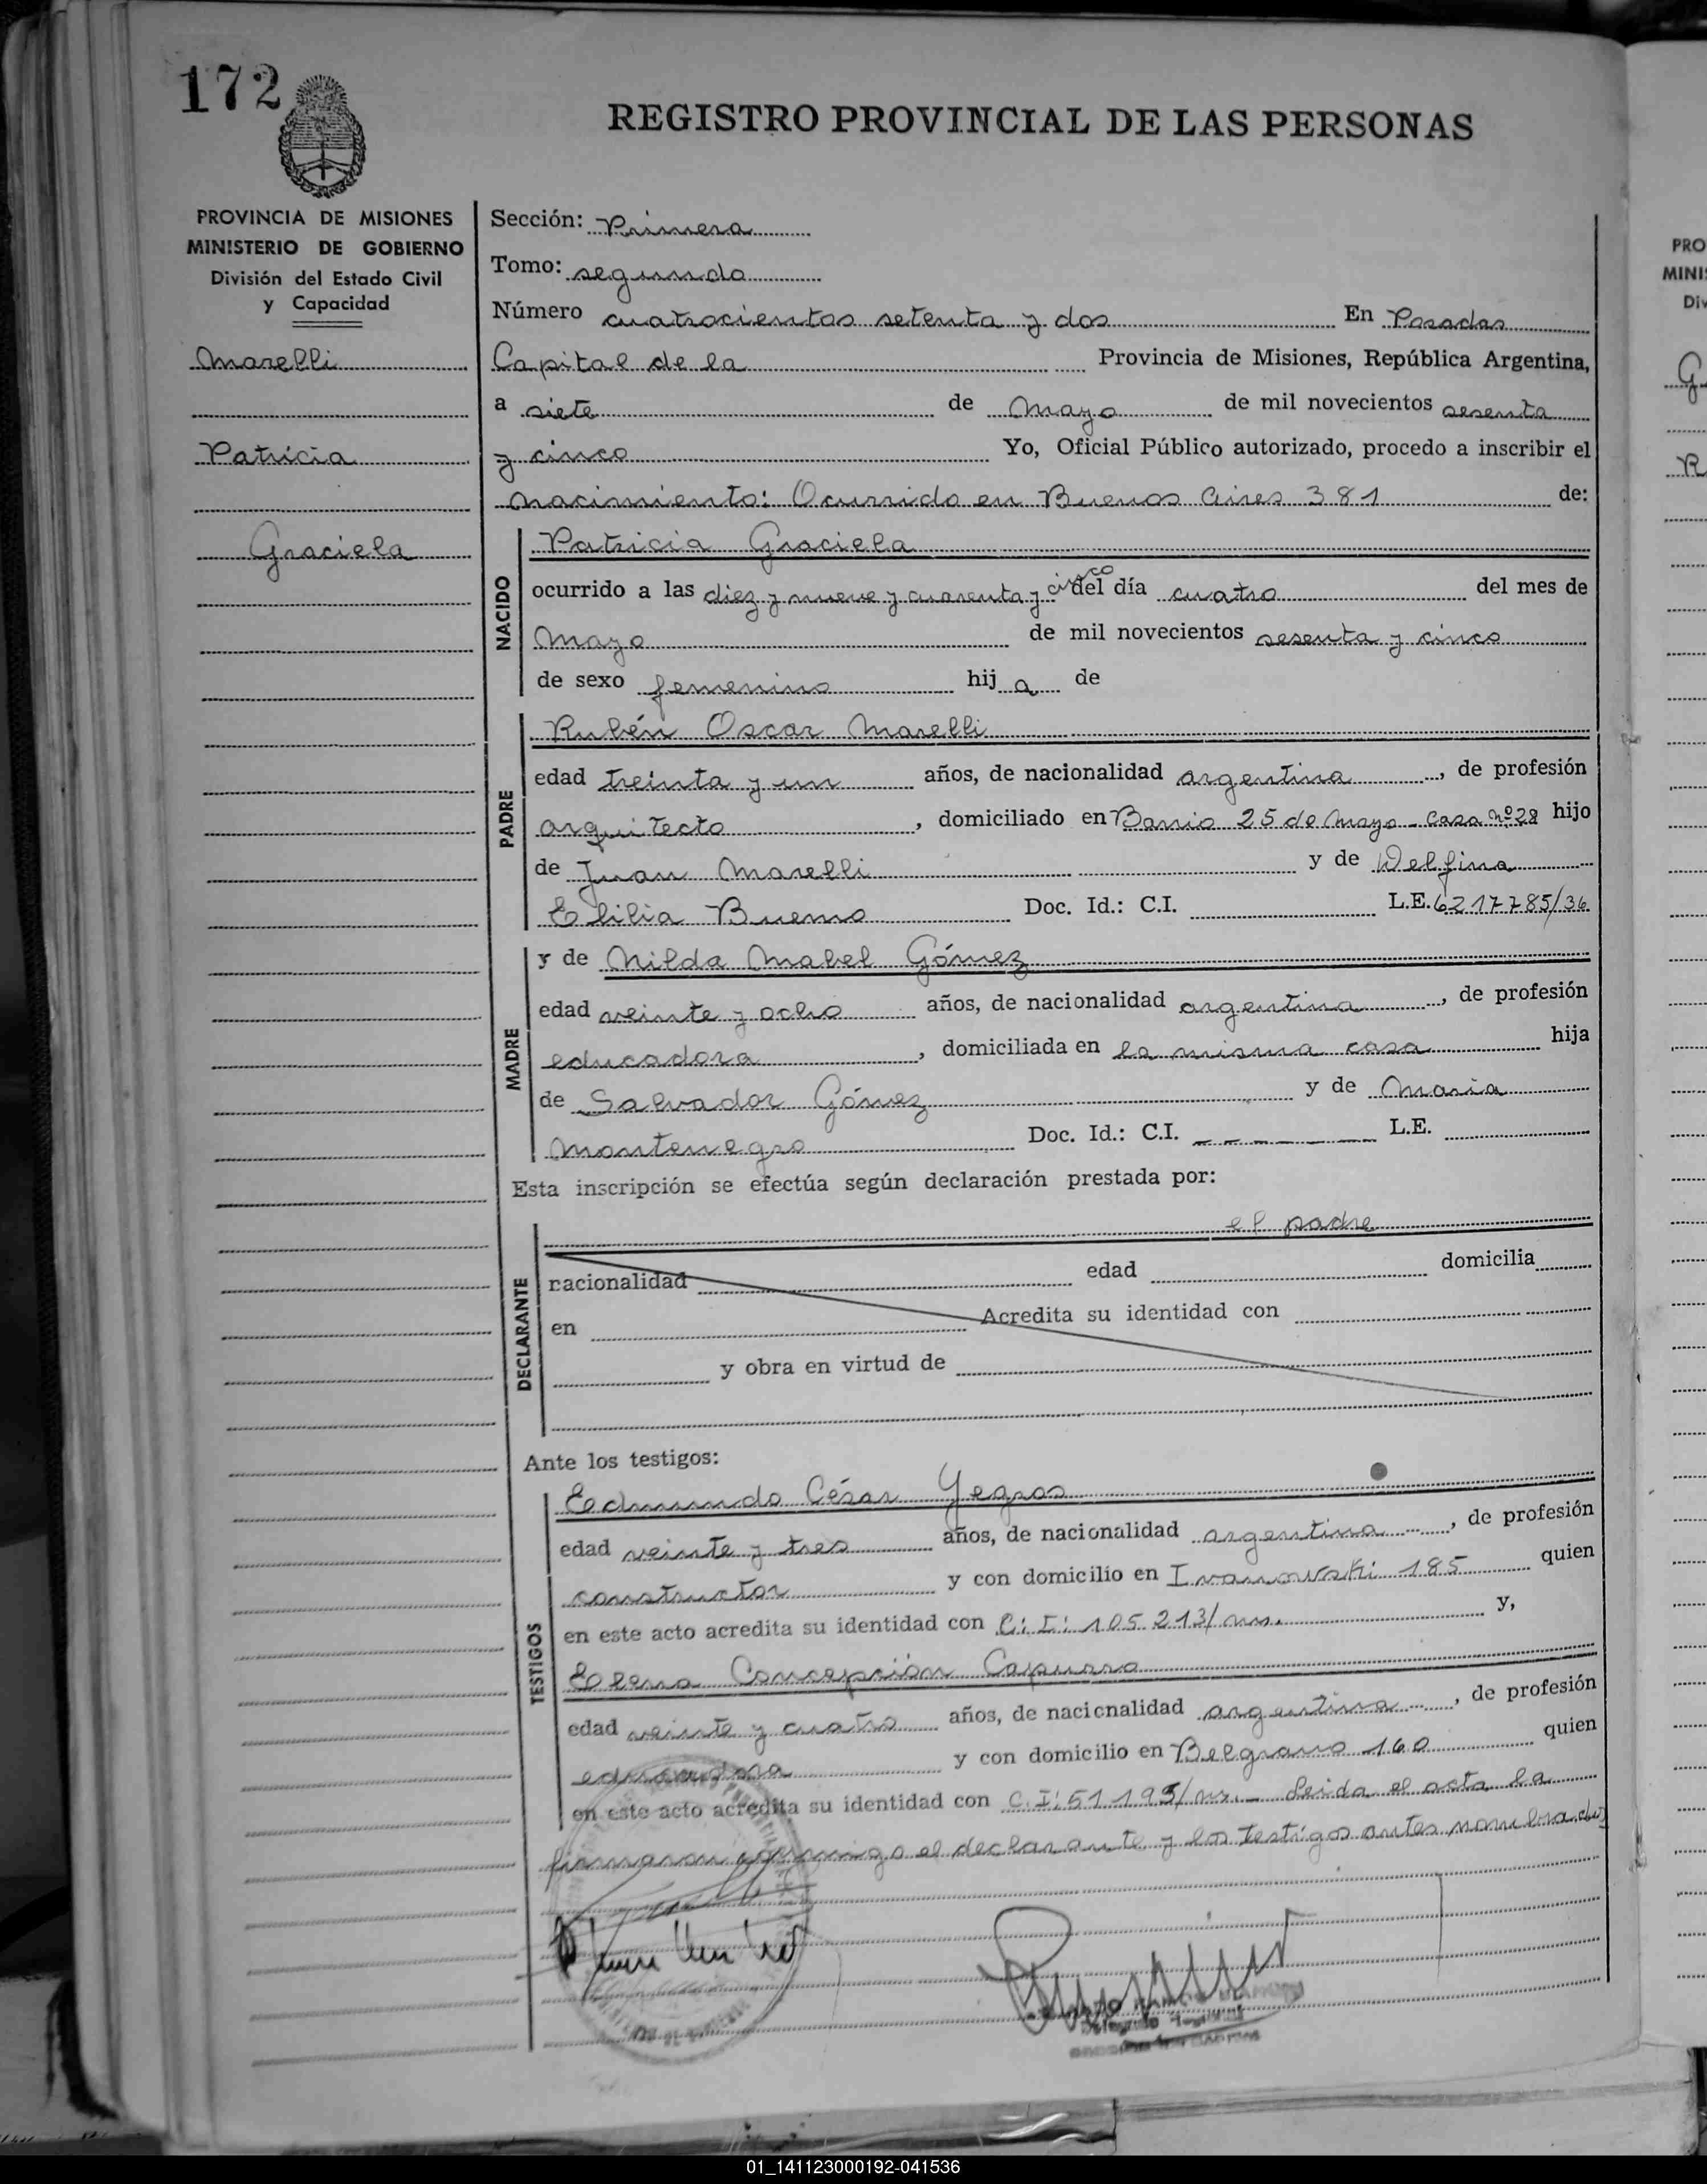 172
REGISTRO PROVINCIAL DE LAS PERSONAS
PROVINCIA DE MISIONES
MINISTERIO DE GOBIERNO
División del Estado Civil
y Capacidad
Marelli
Patricia
Graciela
Sección: Primera
Tomo: segundo
Número cuatrocientos setenta y dos En Posadas
Capital de la Provincia de Misiones, República Argentina,
a siete de Mayo de mil novecientos sesenta
y cinco Yo, Oficial Público autorizado, procedo a inscribir el
nacimiento: Ocurrido en Buenos Aires 381 de:
NACIDO
Patricia Graciela
ocurrido a las diez y nueve y cuarenta y cinco del día cuatro del mes de
Mayo de mil novecientos sesenta y cinco
de sexo femenino hij a de
PADRE
Rubén Oscar Marelli
edad treinta y un años, de nacionalidad argentina, de profesión
arquitecto, domiciliado en Barrio 25 de Mayo - Casa nº 28 hijo
de Juan Marelli y de Delfina
Elilia Bueno Doc. Id.: C.I. L.E. 6217785/36
MADRE
y de Nilda Mabel Gómez
edad veinte y ocho años, de nacionalidad argentina, de profesión
educadora, domiciliada en la misma casa hija
de Salvador Gómez y de Maria
Montenegro Doc. Id.: C.I. L.E.
Esta inscripción se efectúa según declaración prestada por:
DECLARANTE
el padre
nacionalidad edad domicilia
en Acredita su identidad con
y obra en virtud de
Ante los testigos:
TESTIGOS
Edmundo César Yegros
edad veinte y tres años, de nacionalidad argentina, de profesión
constructor y con domicilio en Ivanowski 185 quien
en este acto acredita su identidad con C: I: 105.213/ms. y,
Elena Concepción Capurro
edad veinte y cuatro años, de nacionalidad argentina, de profesión
educadora y con domicilio en Belgrano 160 quien
en este acto acredita su identidad con C.I: 51.195/ms. - Leida el acta la
firmaron conmigo el declarante y los testigos antes nombrados
Delegado
PRO
MINIS
Div
G
R
01_141123000192-041536